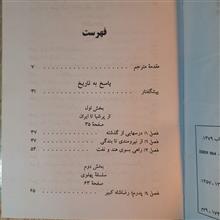 فهرست
مقدمهٔ مترجم ۷
پاسخ به تاریخ
پیشگفتار ۳۱
بخش اول
از پرشیا تا ایران
صفحهٔ ۳۵
فصل ۱: درسهایی از گذشته ۳۷
فصل ۲: از نیرومندی تا بندگی ۴۷
فصل ۳: راهی بسوی هند و نفت ۵۳
بخش دوم
سلسلهٔ پهلوی
صفحهٔ ۶۳
فصل ۴: پدرم: رضاشاه کبیر ۶۵